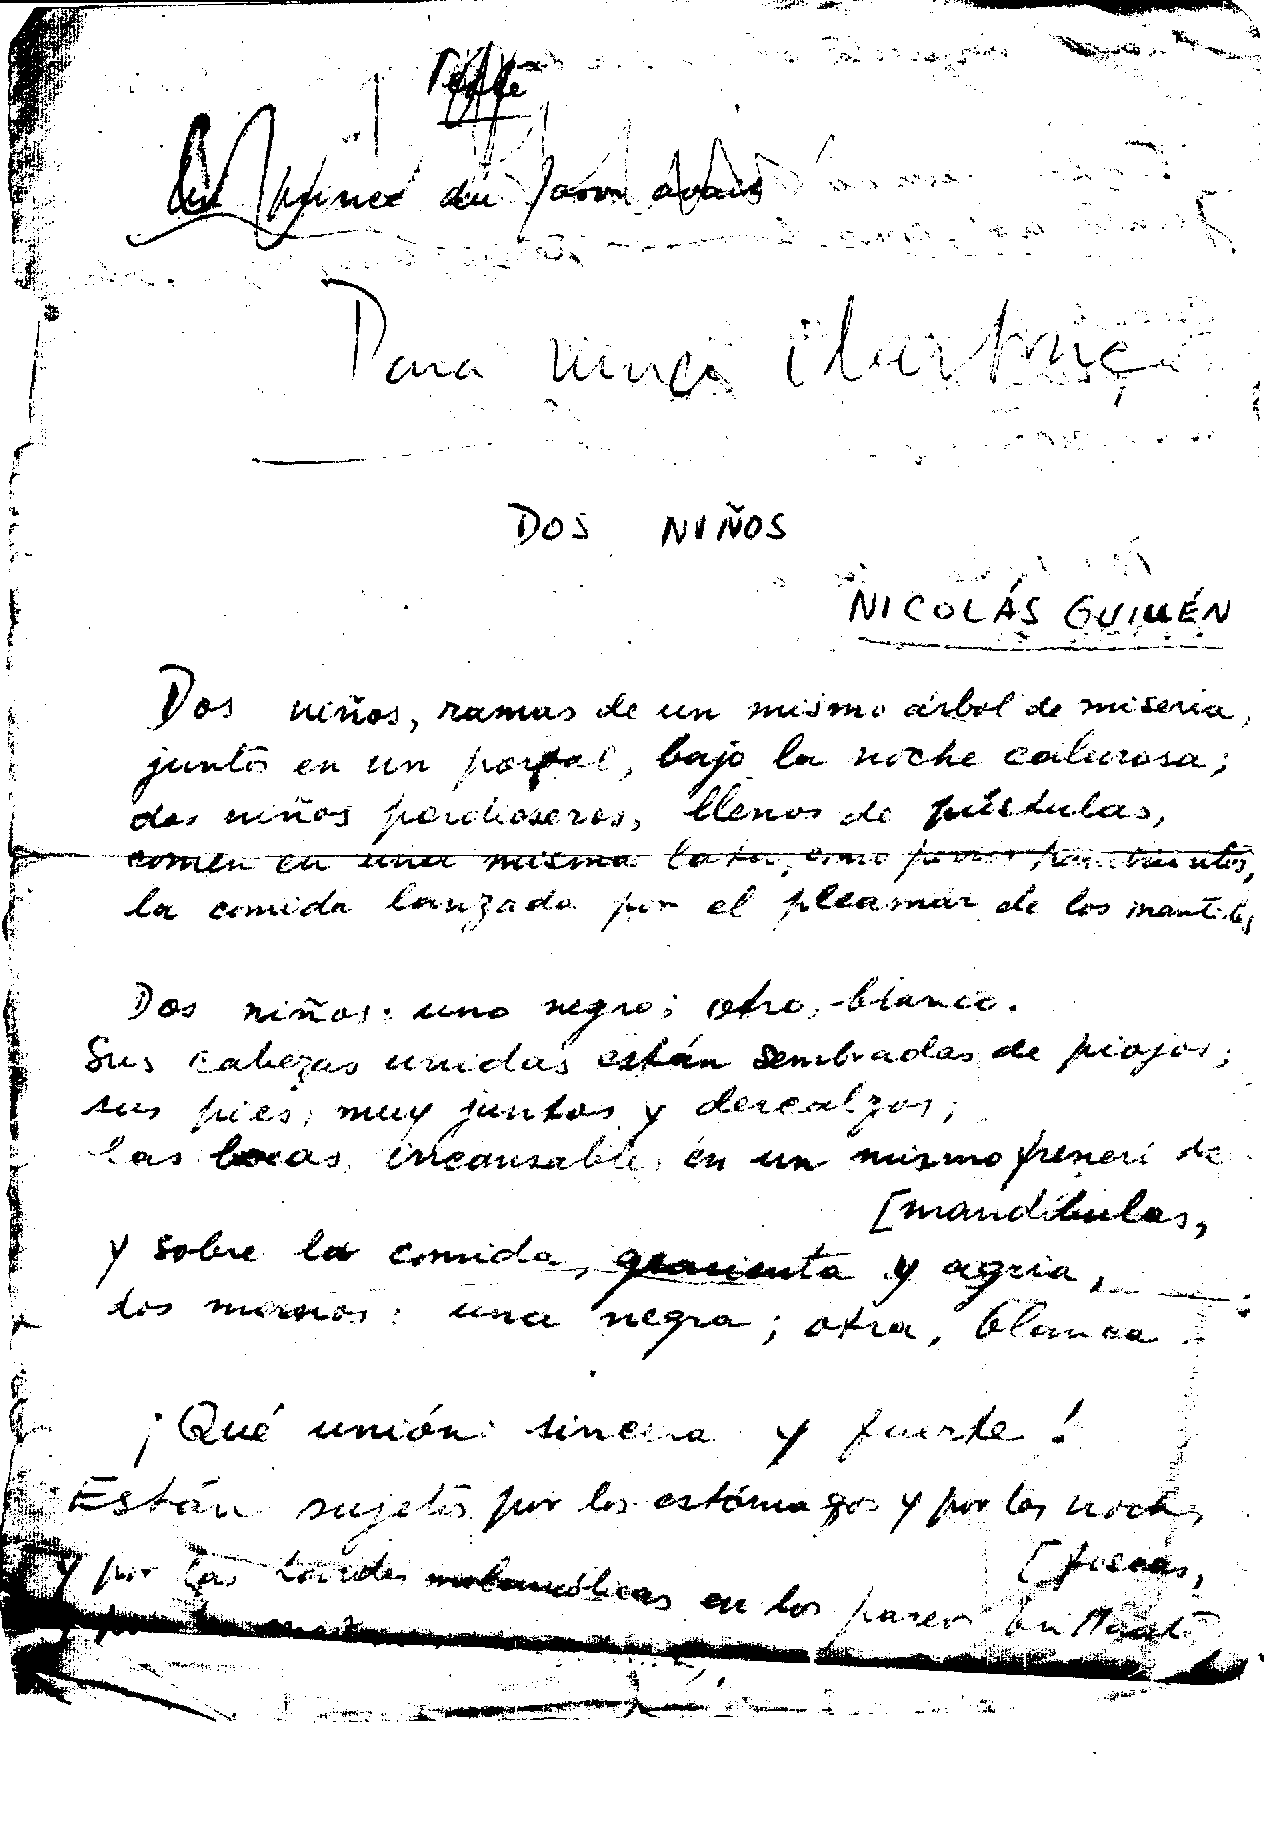 Para
DOS NIÑOS
NICOLÁS GUILLÉN
Dos niños, ramas de un mismo árbol de miseria,
juntos en un portal, bajo la noche calurosa;
dos niños pordioseros, llenos de pústulas,
comen en una misma lata, como perros hambrientos,
la comida lanzada por el pleamar de los manteles
Dos niños: uno negro; otro, blanco.
Sus cabezas unidas están sembradas de piojos;
sus pies, muy juntos y descalzos;
las bocas incansables en un mismo frenesí de
[mandíbulas,
y sobre la comida, grasienta y agria,
dos manos: una negra; otra, blanca
¡Qué unión sincera y fuerte!
Están sujetos por los estómagos y por las noches
[foscas,
y por las tardes melancólicas en los paseos brillantes